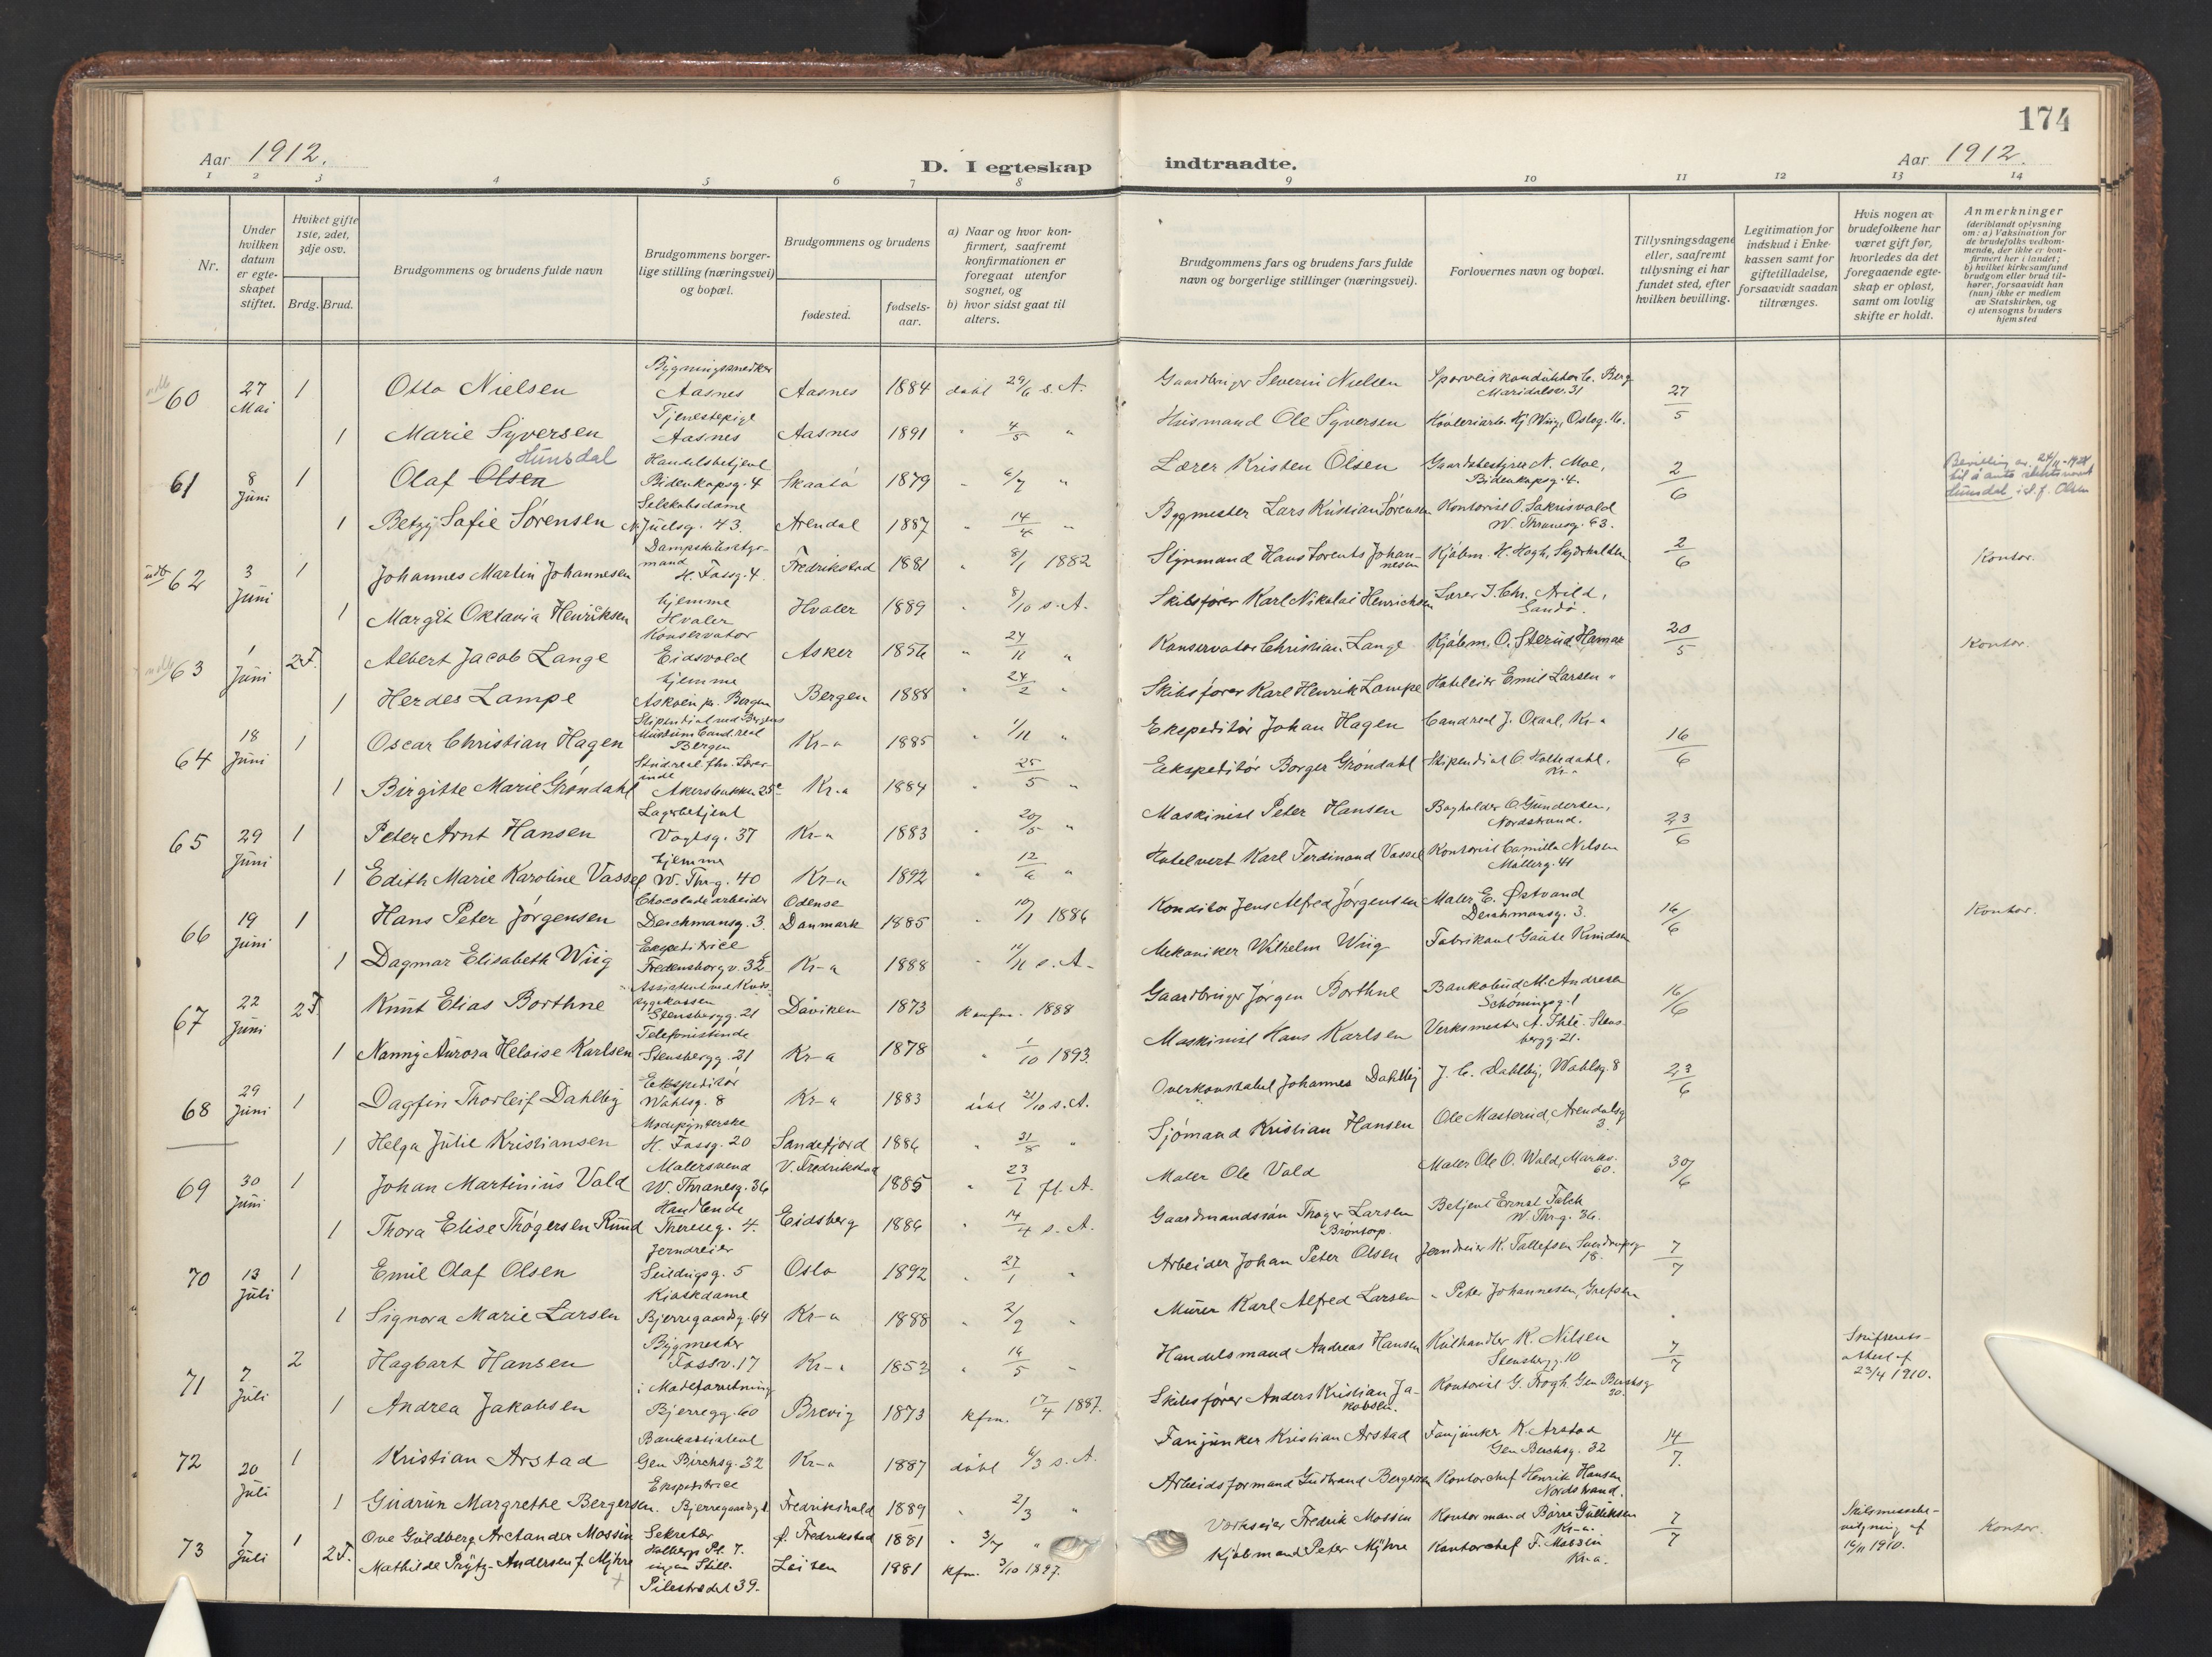 174
Aar 1912.
D. I egteskap indtraadte.
Aar 1912.
1 2 3 4 5 6 7 8 9 10 11 12 13 14
Nr.
Under hvilken datum er egteskapet stiftet.
Hvilket gifte 1ste, 2det, 3dje osv.
Brdg. Brud.
Brudgommens og brudens fulde navn
Brudgommens borgerlige stilling (næringsvei) og bopæl.
Brudgommens og brudens
fødested.
fødselsaar.
a) Naar og hvor konfirmert, saafremt konfirmationen er foregaat utenfor sognet, og
b) hvor sidst gaat til alters.
Brudgommens fars og brudens fars fulde navn og borgerlige stillinger (næringsvei).
Forlovernes navn og bopæl.
Tillysningsdagene eller, saafremt tillysning ei har fundet sted, efter hvilken bevilling.
Legitimation for indskud i Enkekassen samt for giftetilladelse, forsaavidt saadan tiltrænges.
Hvis nogen av brudefolkene har været gift før, hvorledes da det foregaaende egteskap er opløst, samt om lovlig skifte er holdt.
Anmerkninger (deriblandt oplysning om: a) Vaksination for de brudefolks vedkommende, der ikke er konfirmert her i landet; b) hvilket kirkesamfund brudgom eller brud tilhører, forsaavidt han (hun) ikke er medlem av Statskirken, og c) utensogns bruders hjemsted
60 27 Mai 1 Otto Nielsen Bygningssnedker Aasnes Aasnes 1884 døbt 29/6 s. A. Gaardbruger Severin Nielsen Sporveiskonduktør C. Berg Maridalsv. 31 27/5
1 Marie Syversen Tjenestepige Aasnes Aasnes 1891 " 4/5 " Husmand Ole Syversen Høvleriarb. Hj. Wiig, Oslog. 16.
61 8 Juni 1 Olaf Olsen Hunsdal Handelsbetjent Bidenkapsg. 4 Skaatø 1879 " 6/7 " Lærer Kristen Olsen Gaardsbestyrer N. Moe, Bidenkapsg. 4. 2/6
1 Betzy Sofie Sørensen Selskabsdame N. Juelsg. 43. Arendal 1887 " 14/4 " Bygmester Lars Kristian Sørensen Kontorist O. Sakrisvold W. Thranesg. 63.
62 3 Juni 1 Johannes Martin Johannesen Dampskibsstyrmand H. Fossg. 4. Fredrikstad 1881 " 8/1 1882 Styrmand Hans Lorents Johannesen Kjøbm. H. Høgh, 2/6 Kontor.
1 Margit Oktavia Henriksen hjemme Hvaler Hvaler 1889 " 8/10 s. A. Skibsfører Karl Nikolai Henrichsen Lærer J. Chr. Arild, Sandø.
63 1 Juni 2 F. Albert Jacob Lange Konservator Eidsvold Asker 1856 " 24/11 " Konservator Christian Lange Kjøbm. O. Sterud Hamar 20/5 Kontor.
1 Herdes Lampe hjemme Askøen pr. Bergen Bergen 1888 " 24/2 " Skibsfører Karl Henrik Lampe Hoteleier Emil Larsen "
64 18 Juni 1 Oscar Christian Hagen Stipendiat ved Bergens Museum Cand. real Bergen Kr-a 1885 1/11 " Ekspeditør Johan Hagen Cand real J. Oxaal, Kr-a 16/6
1 Birgitte Marie Grøndahl Stud. real. fhv. Lærerinde Akersbakken 25c Kr-a 1884 " 25/5 " Eekspeditør Borger Grøndahl Stipendiat O. Holtedahl. Kr-a
65 29 Juni 1 Peter Arnt Hansen Lagerbetjent Vogtsg. 37 Kr-a 1883 " 20/5 " Maskinist Peter Hansen Bogholder O. Gundersen, Nordstrand. 23/6
1 Edith Marie Karoline Vassel hjemme W. Thr-g. 40 Kr-a 1892 " 12/6 " Hotelvert Karl Ferdinand Vassel Kontorist Camilla Nilsen Møllerg. 41
66 19 Juni 1 Hans Peter Jørgensen Chocoladearbeider Deichmansg. 3. Odense Danmark 1885 " 10/1 1886 Konditor Jens Alfred Jørgensen Maler E. Østvand Deichmansg. 3. 16/6 Kontor.
1 Dagmar Elisabeth Wiig Expeditrice Fredensborgv. 32 Kr-a 1888 " 11/11 s. A. Mekaniker Wilhelm Wiig Fabrikant Gaute Knudsen
67 22 Juni 2 F. Knut Elias Borthne Assistent ved Kredssygekassen Stensbergg. 21 Daviken 1873 konfm. 1888 Gaardbruger Jørgen Borthne Bankobud M. Andresen Schøningsg. 1 16/6
1 Nanny Aurora Heloise Karlsen Telefonistinde Stensbergg. 21 Kr-a 1878 " 1/10 1893. Maskinist Hans Karlsen Verksmester A. Ihle. Stensbergg. 21.
68 29 Juni 1 Dagfin Thorleif Dahlby Eekspeditør Wahlsg. 8 Kr-a 1883 døbt 21/10 s. A. Overkonstabel Johannes Dahlby J. C. Dahlby, Wahlsg. 8 23/6
1 Helga Julie Kristiansen Modepynterske H. Fossg. 20 Sandefjord 1886 " 31/8 " Sjømand Kristian Hansen Ole Masterud, Arendalsg 3.
69 30 Juni 1 Johan Martinius Vold Malersvend W. Thranesg. 36 V. Fredrikstad 1885 " 23/1 fl. A. Maler Ole Vold Maler Ole O. Wold, Markv. 60. 30/6
1 Thora Elise Thøgersen Rund Handlende Thereseg. 4. Eidsberg 1886 " 14/4 s. A. Gaardmandssøn Thøger Larsen Brøntorp. Betjent Ernst Falch W. Thr-g. 36.
70 13 Juli 1 Emil Olaf Olsen Jerndreier Seildugsg. 5 Oslo 1892 " 27/1 " Arbeider Johan Peter Olsen Jerndreier K. Tollefsen Sverdrupsg 18. 7/7
1 Signora Marie Larsen Kioskdame Bjerregaardsg. 64 Kr-a 1888 " 2/9 " Murer Karl Alfred Larsen " Peter Johannesen, Grefsen
71 7 Juli 2 Hagbart Hansen Bygmester Fossv. 17 Kr-a 1853 " 16/5 " Handelsmand Andreas Hansen Kulhandler K. Nilsen Stensbergg. 10 7/7 Skifterets-attest af 23/4 1910.
1 Andrea Jakobsen i Modeforretning Bjerregg. 60 Brevig 1873 kfm. 17/4 1887. Skibsfører Anders Kristian Jakobsen. Kontorist G. Krogh Gen Birchsg 20.
72 20 Juli 1 Kristian Arstad Bankassistent Gen Birchsg. 32 Kr-a 1887 døbt 6/3 s. A. Fanejunker Kristian Arstad Fanjunker K. Arstad Gen Birchsg. 32 14/7.
1 Gudrun Margrethe Bergersen. Expeditrice Bjerregaardsg. Fredrikshald 1889 " 2/3 " Arbeidsformand Gudbrand Bergersen Kontorchef Henrik Hansen Nordstrand.
73 7 Juli 1 Ove Guldberg Arctander Mossin Sekretær Holbergs Pl. 7. f. Fredrikstad 1881 " 3/7 " Værkseier Fredrik Mossin Kontormand Børre Gulliksen Kr-a. 7/7 Skilsmissebevilgning af 16/11 1910. Kontor.
2 F. Mathilde Prytz-Andersen f. Myhre ingen Still. Pilestrædet 39. Løiten 1881 kfm. 3/10 1897. Kjøbmand Peter Myhre Kontorchef F. Mossin Kr-a.